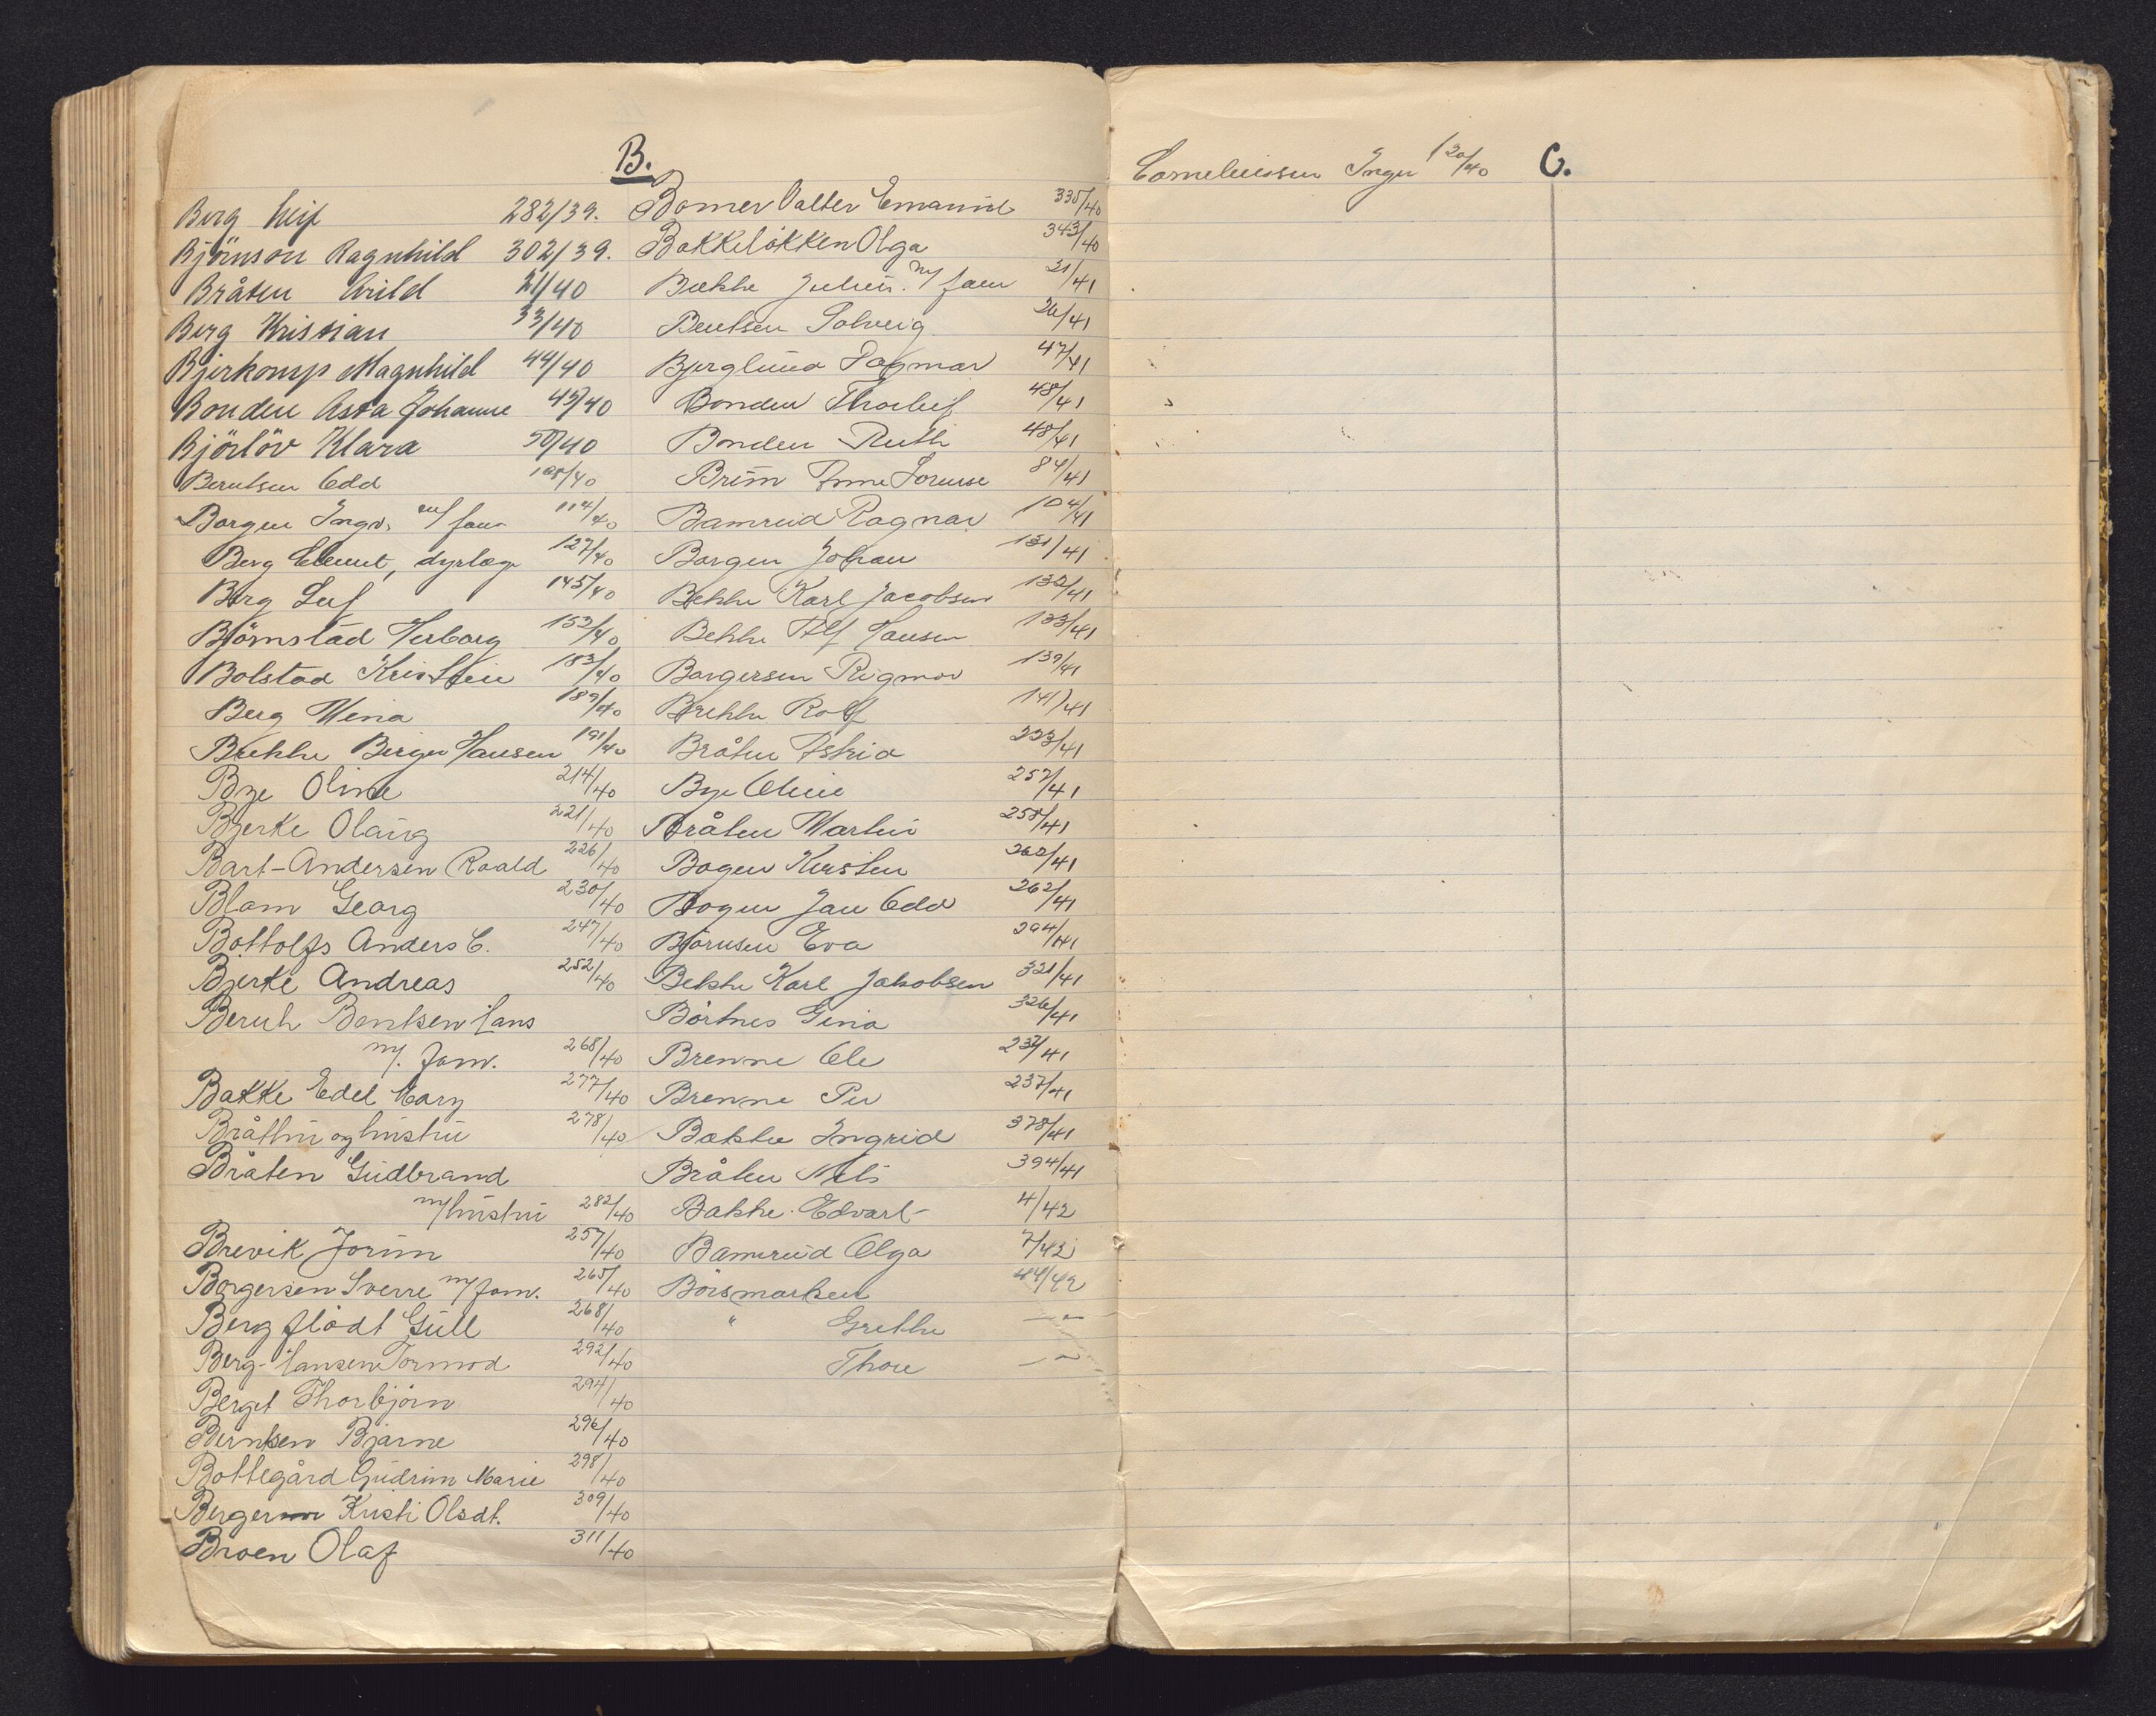 B.
Berg Leif 282/39.
Björnson Ragnhild 302/39.
Bråten Arild 21/40
Berg Kristian 33/40
Bjerkomp Magnhild 44/40
Bonden Asta Johanne 45/40
Björlöv Klara 50/40
Berntsen Odd 108/40
Borgen Ingv. m/ fam 114/40
Berg Clemet, dyrlæge 127/40
Berg Leif 145/40
Björnstad Herborg 153/40
Bolstad Kristine 183/40
Berg Mena 189/40
Brekke Birger Hansen 191/40
Bye Oline 214/40
Bjerke Olaug 221/40
Bart-Andersen Roald 226/40
Blom Georg 230/40
Bottolfs Anders C. 247/40
Bjerke Andreas 252/40
Beruh Bentsen Hans
m/. fam. 268/40
Bakke Edel Mary 277/40
Bråthu og hustru 278/40
Bråten Gudbrand
m/hustru 282/40
Brevik Jorun 257/40
Borgersen Sverre m/fam. 265/40
Berg flödt Gull 268/40
Berg-Hansen Tormod 292/40
Berget Thorbjörn 294/40
Berntsen Bjarne 296/40
Bottegård Gudrun Marie 298/40
Berger Kristi Olsdt. 309/40
Broen Olaf 311/40
Bomer Valter Emanuel 335/40
Bakkelökken Olga 343/40
Bekke Julius. m/ fam 21/41
Bentsen Solveig 26/41
Bjerglund Dagmar 47/41
Bonden Thorleif 48/41
Bonden Ruth 48/41
Brun Anne Lorense 84/41
Bamrud Ragnar 104/41
Borgen Johan 131/41
Bekke Karl Jacobsen 132/41
Bekke Alf Hansen 133/41
Borgersen Rigmor 139/41
Brekke Rolf 141/41
Bråten Astrid 223/41
Bye Oline 257/41
Bråten Martin 258/41
Bogen Kirsten 262/41
Bogen Jan Odd 262/41
Björnsen Eva 294/41
Bekke Karl Jakobsen 321/41
Börtnes Gina 326/41
Brenne Ole 237/41
Brenne Per 237/41
Bakke Ingrid 378/41
Bråten Nils 394/41
Bakke Edvart 4/42
Bamrud Olga 7/42
Börsmarken 44/42
" Grethe —"—
Thore —"—
Corneliussen Inger 120/40
C.